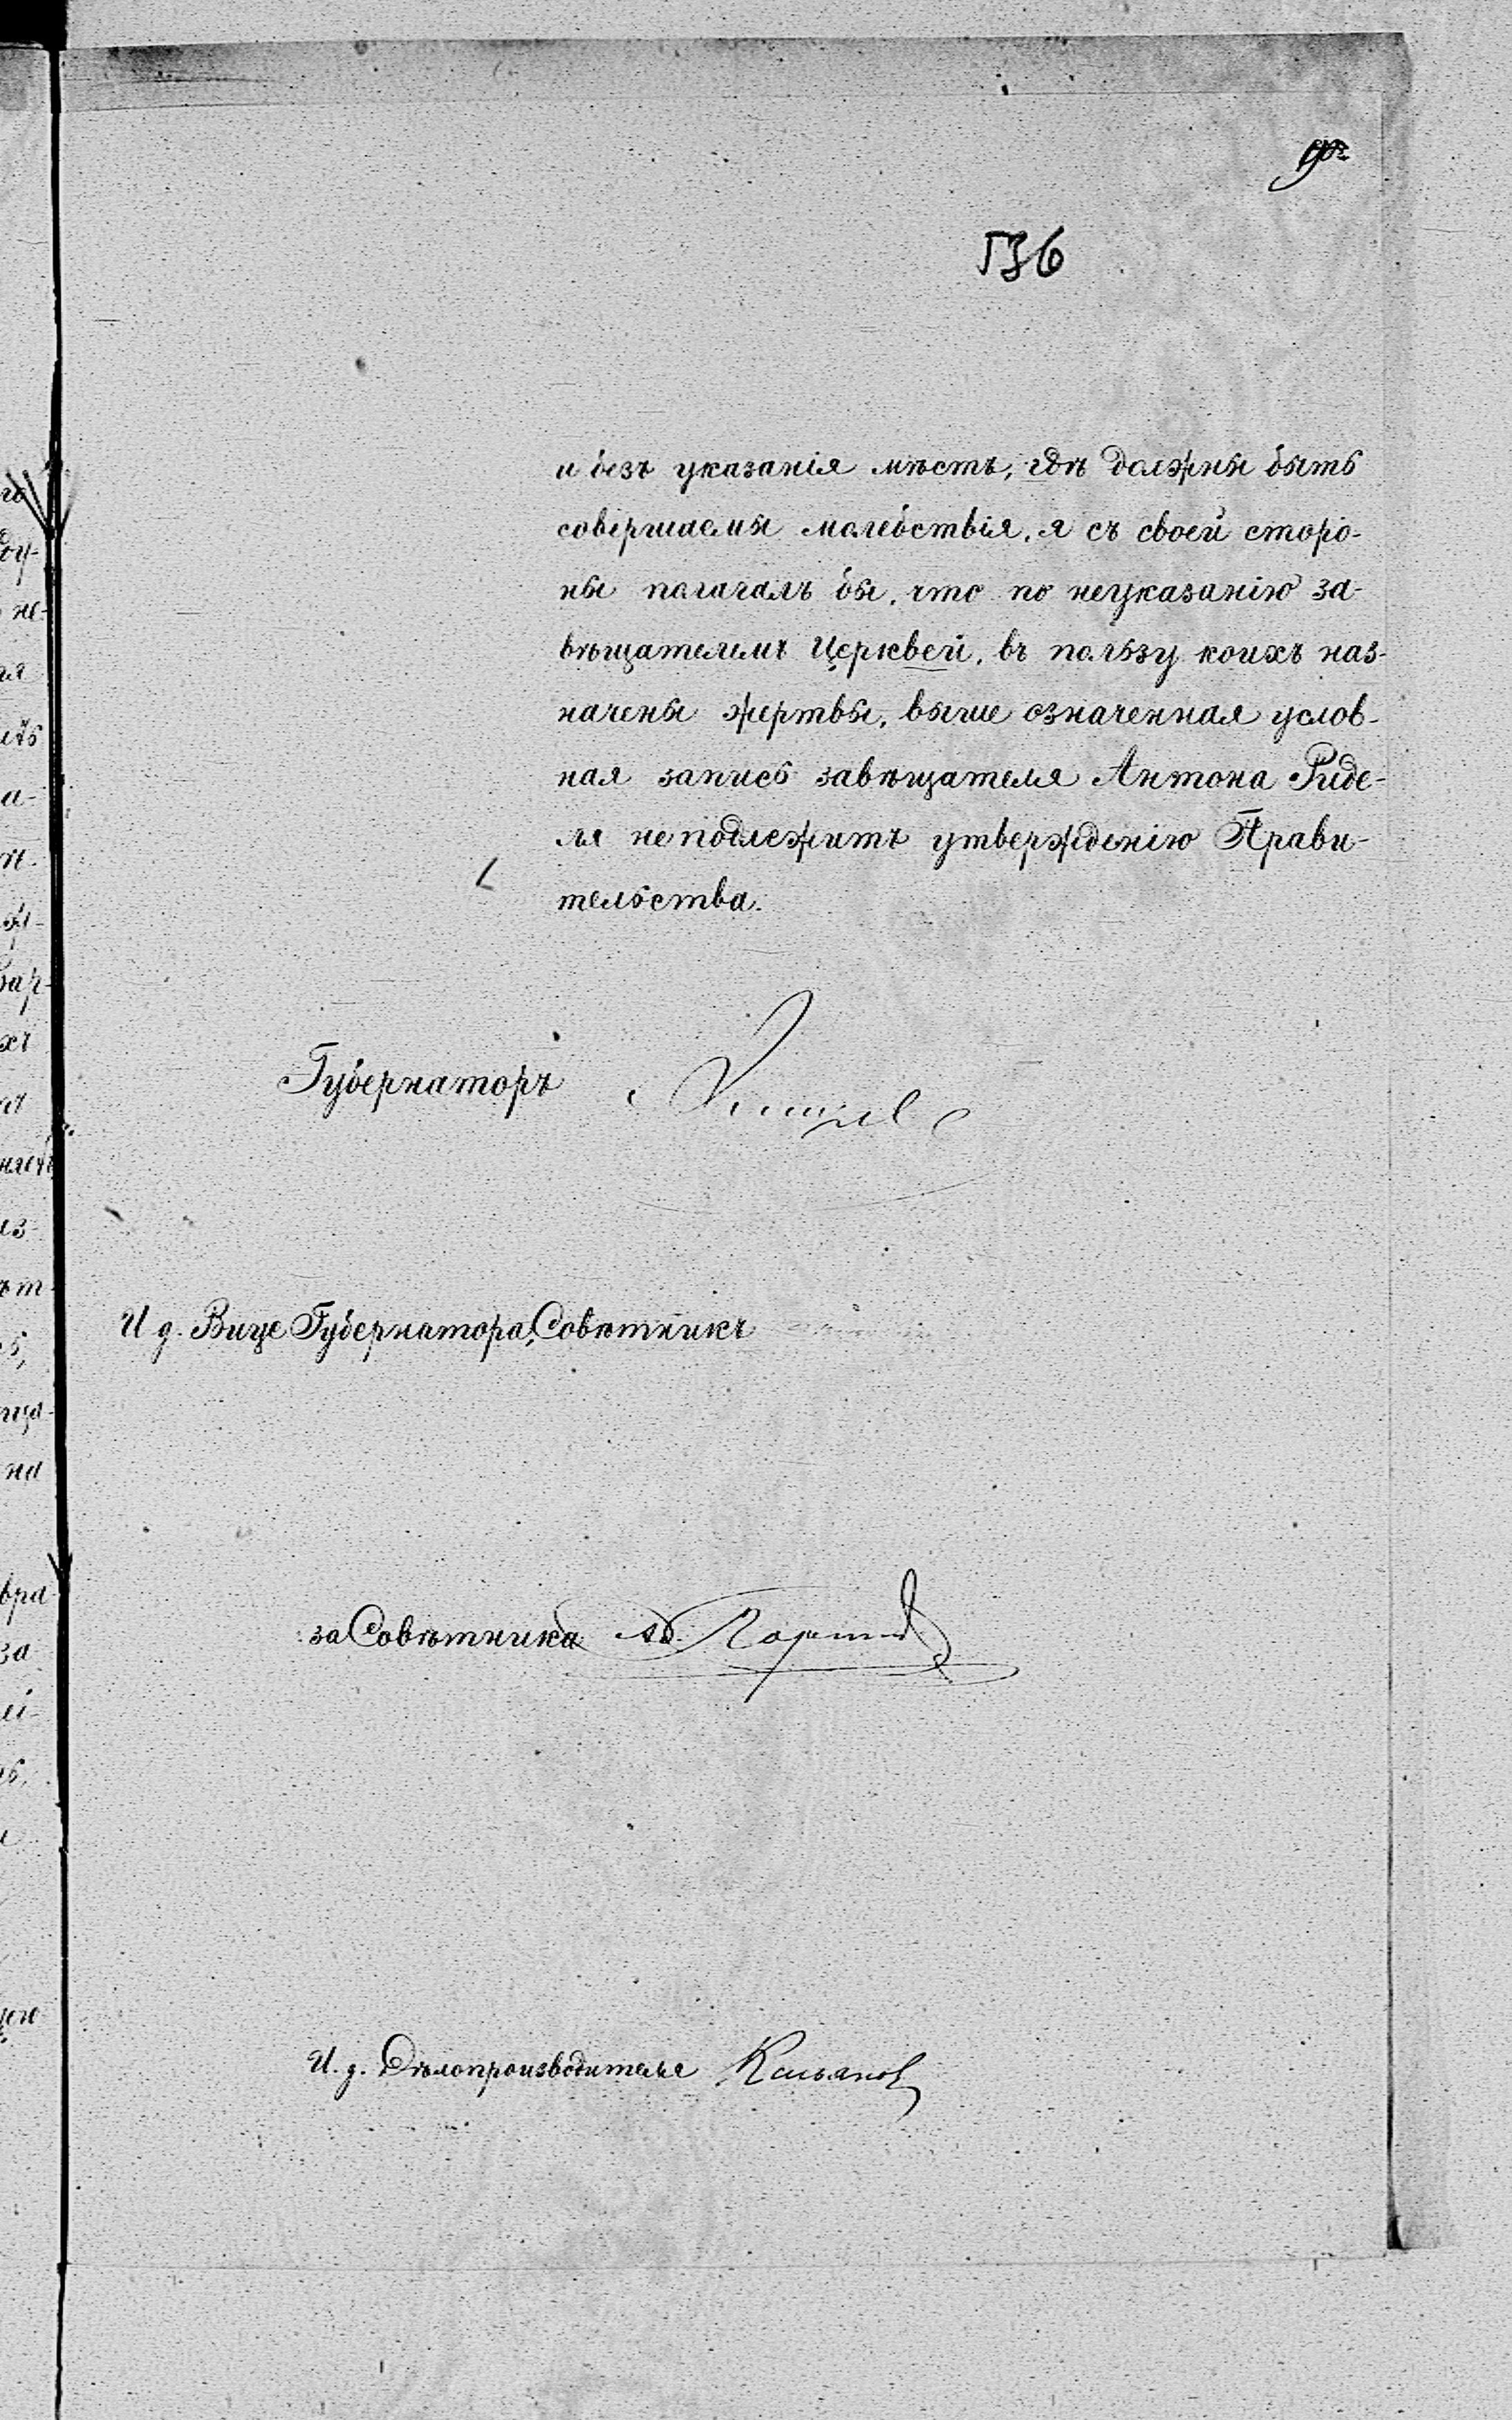 136
и безъ указанія мѣстъ, гдѣ должны быть
совершаемы молебствія, я съ своей сторо-
ны полагалъ бы, что по неуказанію за-
вѣщателемъ Церквей, въ пользу коихъ наз-
начены жертвы, выше означенная услов-
ная запись завѣщателя Антона Риде-
ля не подлежитъ утвержденію Прави-
тельства.
Губернаторъ
И д. Вице Губернатора, Совѣтникъ
за Совѣтника
И. д. Дѣлопроизводителя